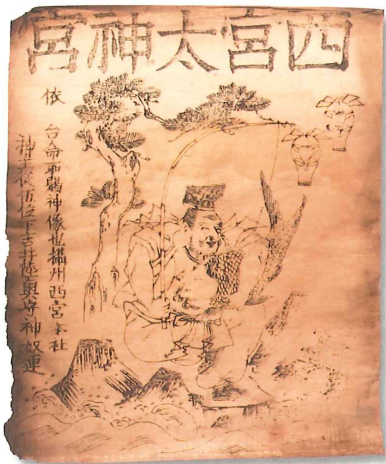 西宮太神宮
依
台命神像也攝州西宮本社
神主従五位下吉井陸奥守神奴連